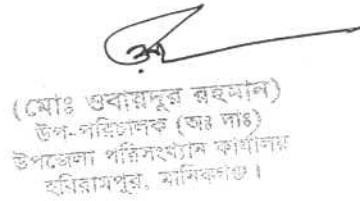 (মোঃ ওবায়দুর রহমান)
উপ-পরিচালক (অঃ দাঃ)
উপজেলা পরিসংখ্যান কার্যালয়
হরিরামপুর, মানিকগঞ্জ।